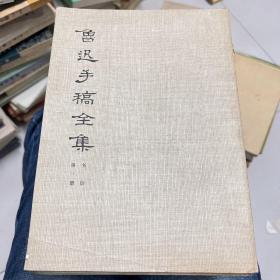 魯迅手稿全集